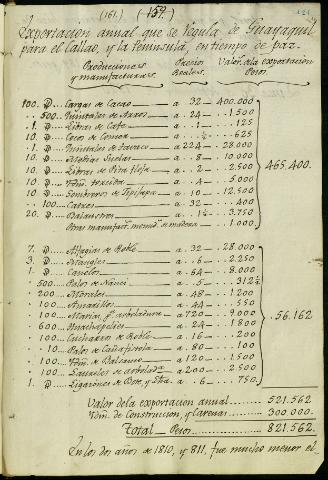 (161.) (159.) 121
Exportacion annual que se regula de Guayaquil
para el Callao, y la Peninsula, en tiempo de paz.
Producciones y manufacturas. Precios Reales. Valor de la exportacion Pesos.
100. D.... Cargas de Cacao a 32 400.000
500. Quintales de Arroz a 24 1.500
1. D.... Libras de Cafe a 1 125
10. D.... Cocos de Comer a ½ 625
1. D.... Quintales de Tavaco a 224 28.000
10. D.... Medias Suelas a 8 10.000
10. D.... Libras de Pita floja a 2 2.500
10. D.... Ydm. torcida a 4 5.000
10. D.... Sombreros de Xipijapa a 10 12.500
100. Catres a 32 400
20. D.... a 1½ 3.750
Otras manufact.s menud.s de madera 1.000
465.400.
7. D.... Alfagias de Roble a 32 28.000
3. D.... Mangles a 6 2.250
1. D.... Canelos a 64 8.000
500. Palos de a 5 312½
200. Morales a 48 1.200
100. Amarillos a 44 550
100. Marias p.a arboladura a 720 9.000
600. Guachapelies a 24 1.800
100. Cucharos de Roble a 16 200
10. Palos de Cañafistola a 80 100
100. Ydm. de Balsamo a 120 1.500
100. Laureles de arbolad.a a 200 2.500
1. D.... Ligazones de a 6 750
56.162
Valor de la exportacion annual 521.562
Ydm. de Construccion, y Carenas 300.000.
Total Pesos 821.562.
En los dos años de 1810, y 811, fue mucho menor el